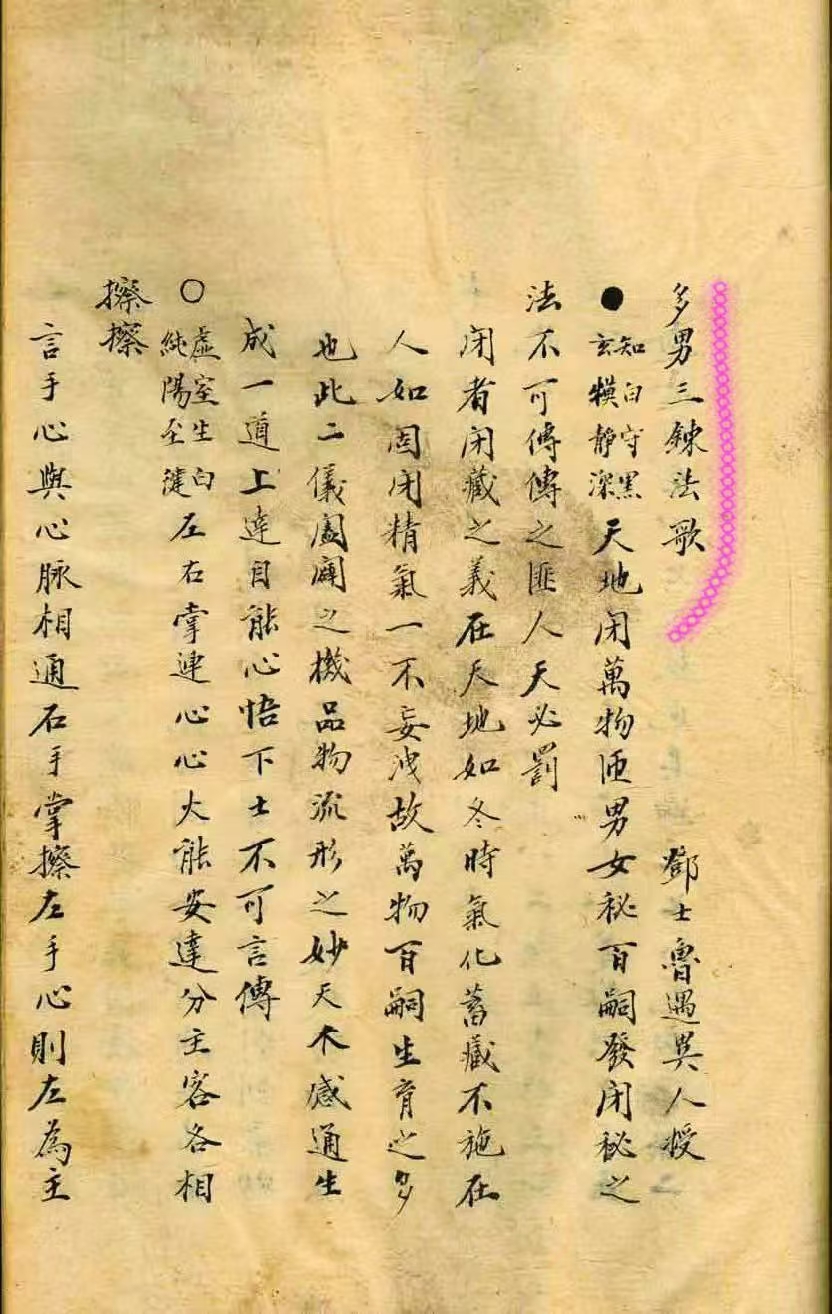 多男三鍊法歌　鄧士魯遇異人授
●知白守黑玄牝靜深天地閉萬物匝男女秘百嗣發閉秘之
法不可傳傳之匪人天必罰
閉者閉藏之義在天地如冬時氣化蓄藏不施在
人如固閉精氣一不妄洩故萬物百嗣生育之多
也此二儀闔闢之機品物流形之妙天木感通生
成一道上達自能心悟下士不可言傳
○虛室生白純陽至健左右掌連心心火能安達分主客各相
擦擦
言手心與心脉相通右手掌擦左手心則左為主